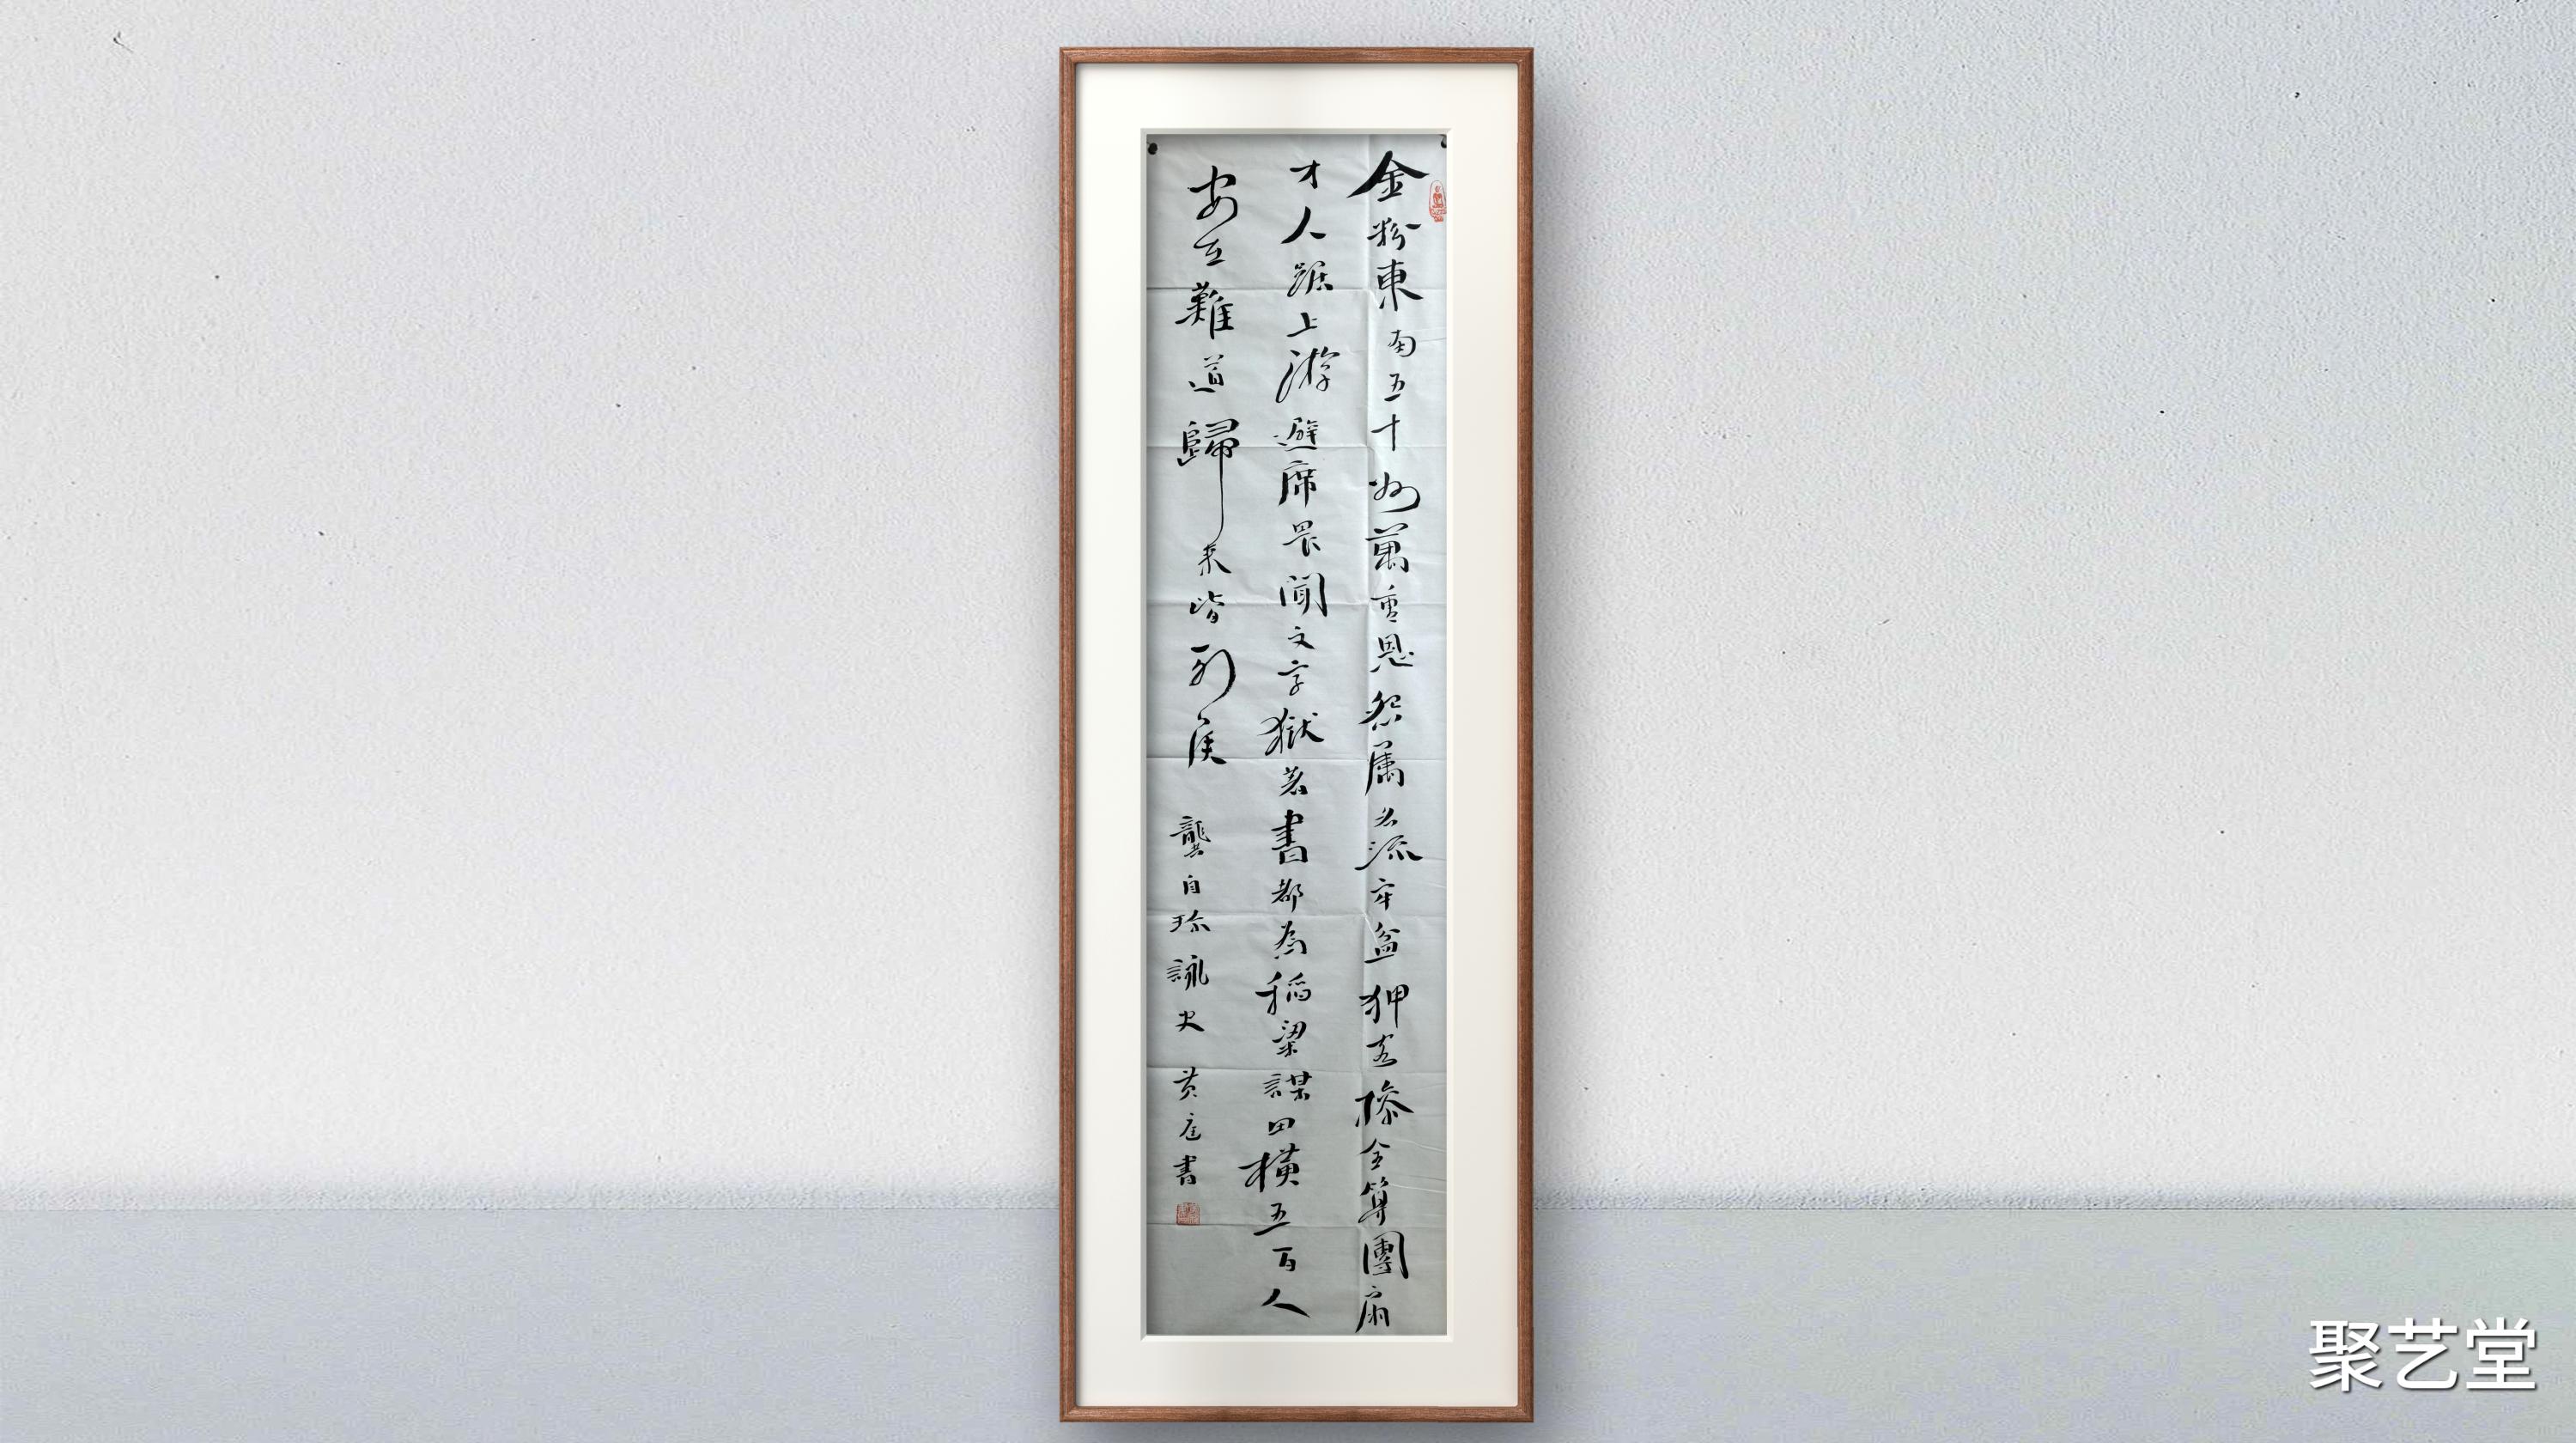 金粉東南五十州萬重恩怨属名流牢盆狎客操全算團扇
才人踞上游避席畏聞文字獄著書都為稻梁謀田橫五百人
安在難道歸来皆列侯 龔自珍詠史 黄庭書
聚艺堂